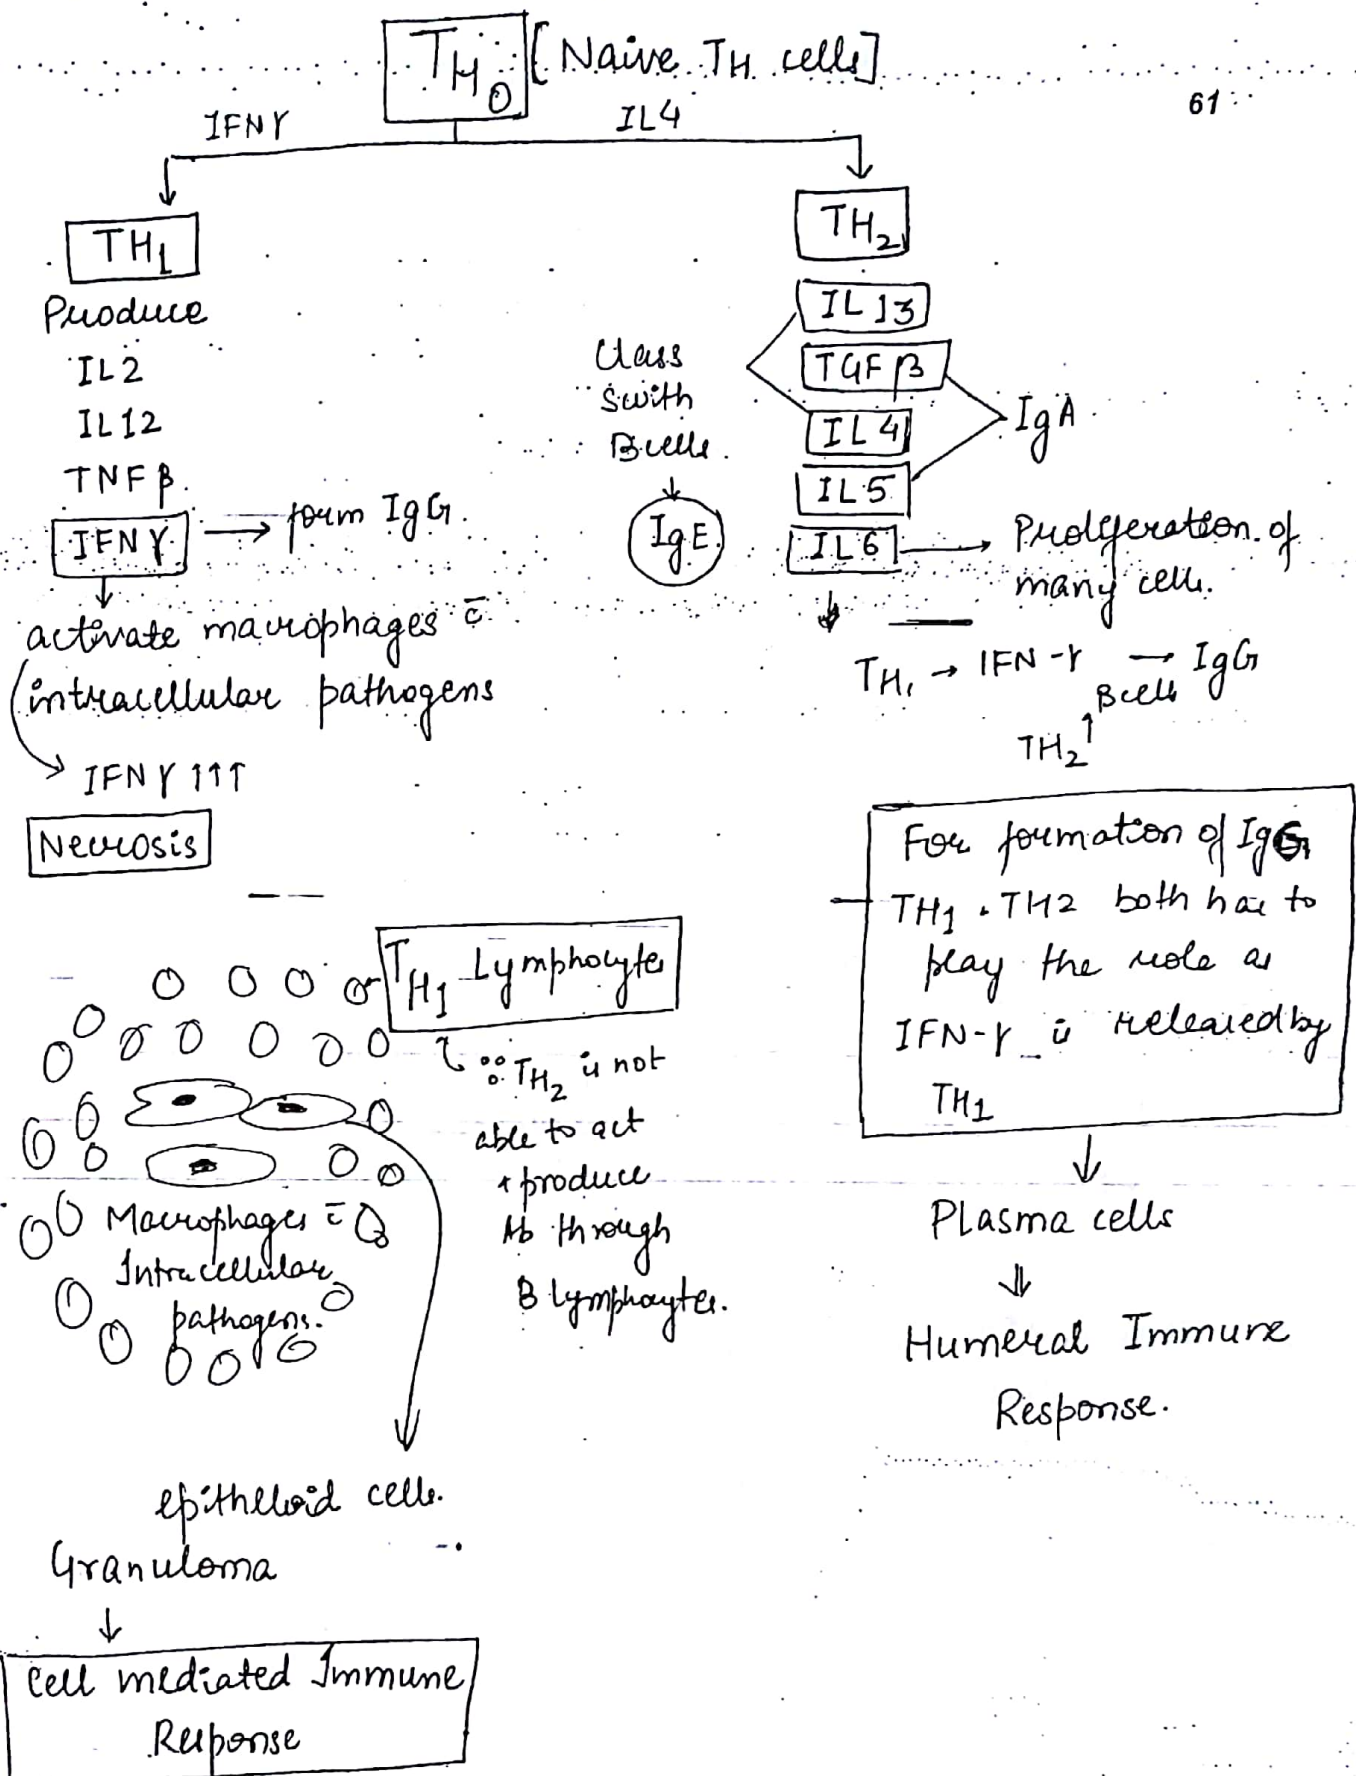 TH0 [Naive TH cells]
61
IFNγ
IL4
TH1
Produce
IL2
IL12
TNF β.
IFNγ → form IgG.
↓
activate macrophages c̄
intracellular pathogens
→ IFNγ ↑↑↑
Necrosis
TH2
IL13
TGF β
IL4
IL5
IL6 → Proliferation of
many cells.
Class
Swith
B cells.
↓
IgE
IgA
TH1 → IFN-γ → IgG
B cells
TH2 ↑
For formation of IgG,
TH1 . TH2 both has to
play the role as
IFN-γ is released by
TH1
↓
Plasma cells
⇓
Humeral Immune
Response.
TH1 Lymphocytes
∵ TH2 is not
able to act
+ produce
Ab through
B lymphocytes.
Macrophages c̄
Intracellular
pathogens.
epitheloid cells.
Granuloma
↓
Cell mediated Immune
Response